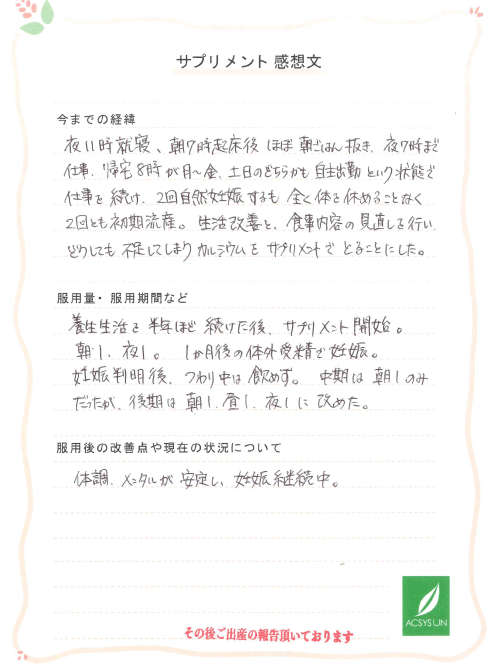 サプリメント 感想文
今までの経緯
夜11時就寝、朝7時起床後 ほぼ 朝ごはん 抜き、夜7時まで
仕事、帰宅8時が月〜金、土日のどちらかも 自主出勤 という状態で
仕事を 続け、2回自然妊娠するも 全く体を休めることなく
2回とも初期流産。 生活改善と、食事内容の見直しを行い、
どうしても 不足してしまう カルシウムを サプリメントで とることにした。
服用量・服用期間など
養生生活を 半年ほど 続けた後、サプリメント開始。
朝1、夜1。 1か月後の体外受精で妊娠。
妊娠判明後、つわり中は 飲めず。 中期は 朝1のみ
だったが、後期は 朝1、昼1、夜1に 改めた。
服用後の改善点や現在の状況について
体調、メンタルが 安定し、妊娠継続中。
その後ご出産の報告頂いております
ACSYSUN